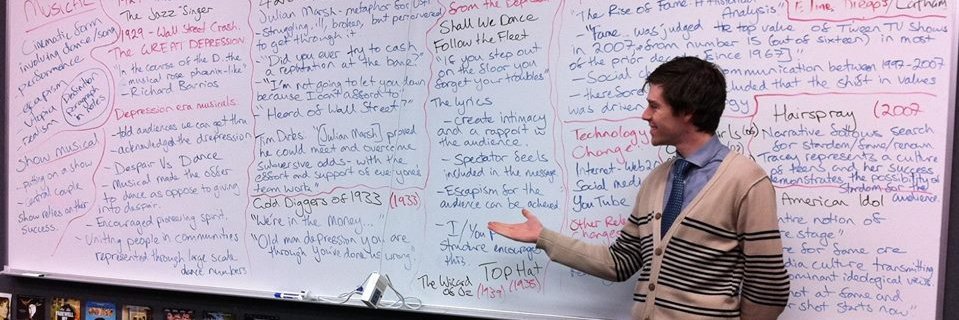 MUSICAL
Cinematic form
involving dance/song
performance
escapism
utopia
realism
Show musical
- putting on a show
- central couple
Show relies on their
success.
"The Jazz Singer"
1929 - Wall Street Crash.
The GREAT DEPRESSION
"In the course of the D. the
musical rose phoenix-like"
- Richard Barrios
Depression era musicals.
- told audiences we can get thru
- acknowledge the depression
- Despair Vs Dance
- Musical made the offer
to dance as oppose to giving
into despair.
- Encouraged pioneering spirit.
- Uniting people in communities
represented through large scale
dance numbers
Julian Marsh - metaphor for
struggling, ill, broken, but persevered
to get through it
"Did you ever try to cash
a reputation at the bank?"
"I'm not going to let you down
because I can't afford to"
- Heard of Wall Street?"
Tim Dirks: "[Julian Marsh] proved
he could meet and overcome
subversive odds - with the
effort and support of everyone's
team work"
Gold Diggers of 1933 (1933)
"We're in the money...
"Old man depression you are
through you've done us wrong"
from the Depression
Shall We Dance
Follow the Fleet
"If you step out
on the floor you
forget your troubles"
The lyrics
- create intimacy
and a rapport w
the audience.
- Spectator feels
included in the message
- Escapism for the
audience can be achieved
- I / You
structure encourages
this.
TOP Hat
(1935)
The Wizard
of Oz (1939)
"The Rise of Fame: A Historical
Analysis"
- "Fame was judged the top value of Tween TV shows
in 2007, from number 15 (out of sixteen) in most
of the prior decades [since 1967]
- Social communication between 1997-2007
concluded that the shift in values
was driven
Technology
Change
Internet - Web 2.0
Social media
YouTube
Hairspray (2007
Narrative follows search
for stardom/fame/renown
Tracey represents a culture
of teens and her success
demonstrates the possibility of
stardom for the
audience.
American Idol
notion of
stage"
for fame are
media culture transmitting
dominant ideological views.
not at fame and
shot starts now"